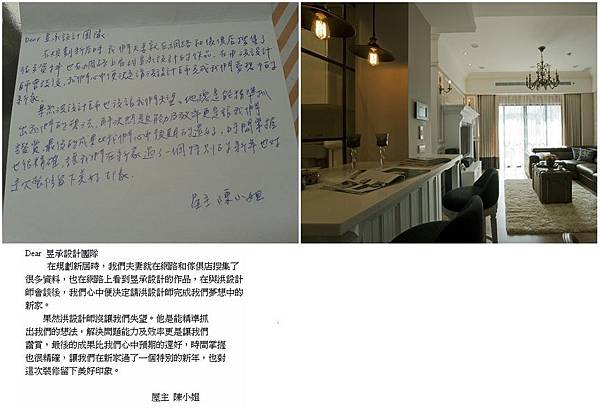 Dear 昱承設計團隊
在規劃新居時,我們夫妻就在網路和傢俱店搜集了
很多資料,也在網路上看到昱承設計的作品,在與洪設計
師會談後,我們心中便決定請洪設計師完成我們夢想中的
新家。
果然洪設計師沒讓我們失望。他總是能精準抓
出我們的想法,解決問題能力及效率更是讓我們
讚賞,最後的成果比我們心中預期的還好,時間掌握
也很精確,讓我們在新家過了一個特別的新年,也對
這次裝修留下美好印象。
屋主 陳小姐
Dear 昱承設計團隊
在規劃新居時,我們夫妻就在網路和傢俱店搜集了
很多資料,也在網路上看到昱承設計的作品,在與洪設計
師會談後,我們心中便決定請洪設計師完成我們夢想中的
新家。
果然洪設計師沒讓我們失望。他是能精準抓
出我們的想法,解決問題能力及效率更是讓我們
讚賞,最後的成果比我們心中預期的還好,時間掌握
也很精確,讓我們在新家過了一個特別的新年,也對
這次裝修留下美好印象。
屋主 陳小姐